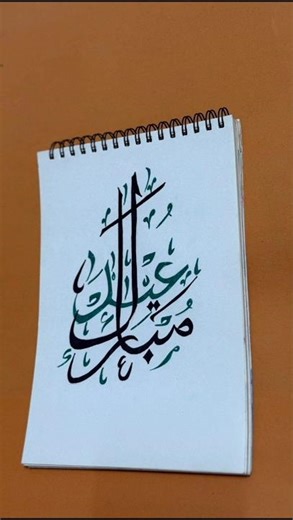 عيد
مُبارك